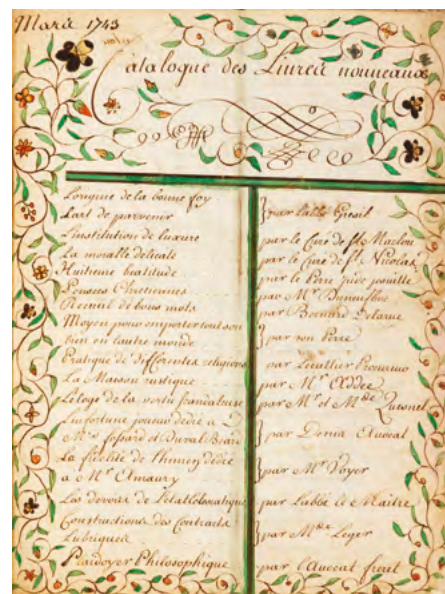 Mars 1743
Catalogue des Livres nouveaux
Lorigine de la bonne foy
Lart de parvenir
Linstitution de luxure
La moralle délicate
Huitieme beatitude
Pensees Chretiennes
Recueil de bons mots
Moyen pour emporter tout son
bien en lautre monde
Pratique de differentes religions
La Maison rustique
Leloge de la vertu scandaleuse
Linfortune joueur dédié a
Mrs fossard et Duval
La fidelité de lhimen dédié
a Mr Elmaury
Les devoirs de
Constructions des Contracts
Lubriques
Plaidoyer Philosophique
par labbé
par le Curé de St Maclou
par le Curé de St Nicolas
par le Pere
par Mr
par Bernard Delarue
par son Pere
par
par Mr
par Mr et Mde Quesnel
par Denis Avocat
par Mr Voyer
par Labbé le Maitre
par Mde Leger
par lAvocat freret